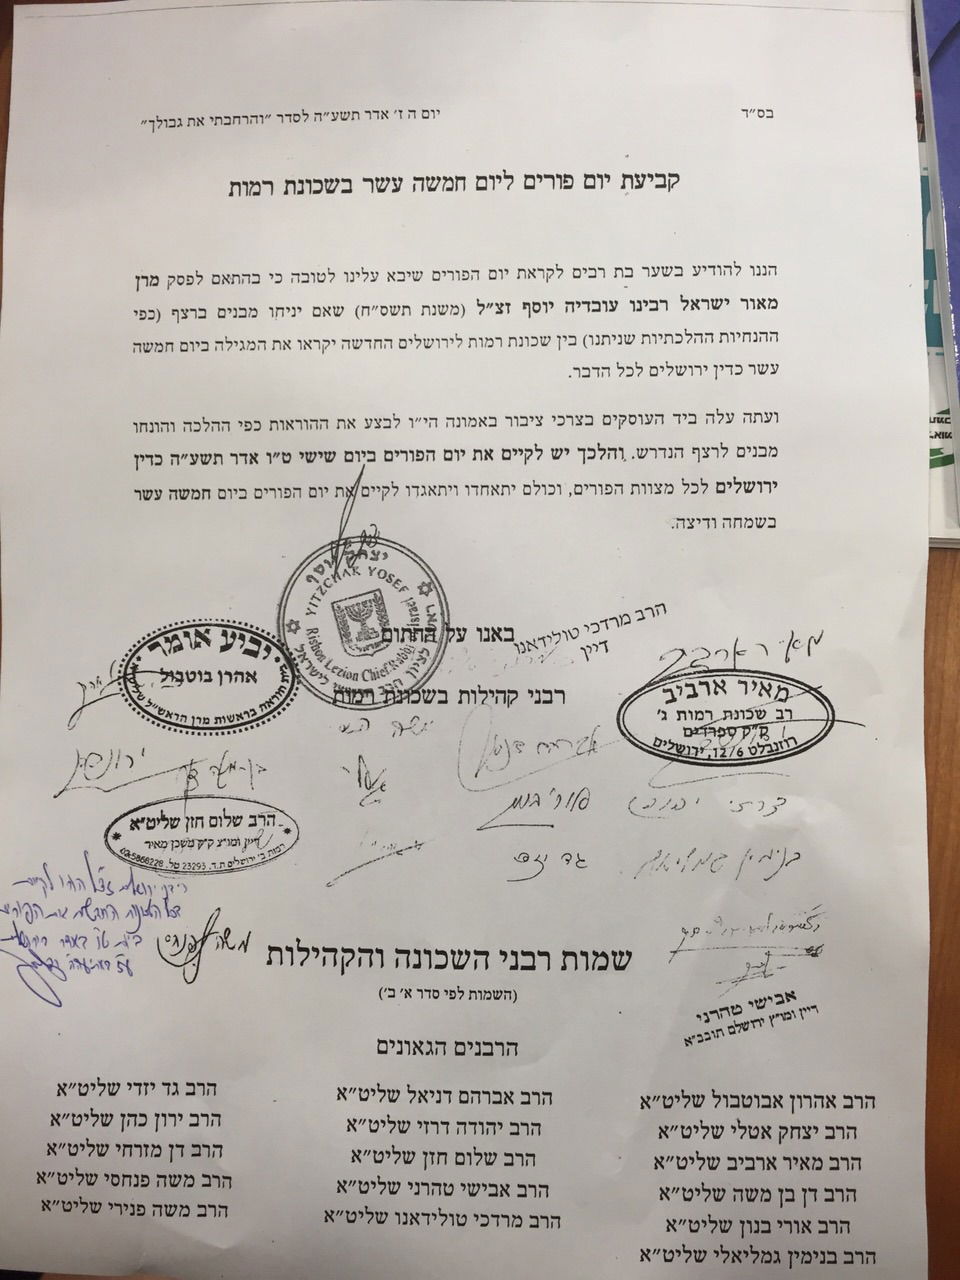 בס״ד
יום ה ז׳ אדר תשע״ה לסדר ״והרחבתי את גבולך״
קביעת יום פורים ליום חמשה עשר בשכונת רמות
הננו להודיע בשער בת רבים לקראת יום הפורים שיבא עלינו לטובה כי בהתאם לפסק מרן
מאור ישראל רבינו עובדיה יוסף זצ״ל (משנת תשס״ח) שאם יניחו מבנים ברצף (כפי
ההנחיות ההלכתיות שניתנו) בין שכונת רמות לירושלים החדשה יקראו את המגילה ביום חמשה
עשר כדין ירושלים לכל הדבר.
ועתה עלה ביד העוסקים בצרכי ציבור באמונה הי״ו לבצע את ההוראות כפי ההלכה והונחו
מבנים לרצף הנדרש. והלכך יש לקיים את יום הפורים ביום שישי ט״ו אדר תשע״ה כדין
ירושלים לכל מצוות הפורים, וכולם יתאחדו ויתאגדו לקיים את יום הפורים ביום חמשה עשר
בשמחה ודיצה.
יצחק יוסף
YITZCHAK YOSEF
Rishon Lezion Chief Rabbi Israel
באנו על החתום
הרב מרדכי טולידאנו
דיין
יביע אומר
אהרן בוטבול
רבני קהילות בשכונת רמות
מאיר ארביב
רב שכונת רמות ג׳
ק״ק ספרדים
רוזנבלט 12/6, ירושלים
הרב שלום חזן שליט״א
דיין ומו״צ ק״ק משכן מאיר
רמות ב׳ ירושלים ת.ד. 23293 טל. 02-5868228
אבישי טהרני
דיין ומו״ץ ירושלם תובב״א
שמות רבני השכונה והקהילות
(השמות לפי סדר א׳ ב׳)
הרבנים הגאונים
הרב אהרון אבוטבול שליט״א
הרב יצחק אטלי שליט״א
הרב מאיר ארביב שליט״א
הרב דן בן משה שליט״א
הרב אורי בנון שליט״א
הרב בנימין גמליאלי שליט״א
הרב אברהם דניאל שליט״א
הרב יהודה דרזי שליט״א
הרב שלום חזן שליט״א
הרב אבישי טהרני שליט״א
הרב מרדכי טולידאנו שליט״א
הרב גד יזדי שליט״א
הרב ירון כהן שליט״א
הרב דן מזרחי שליט״א
הרב משה פנחסי שליט״א
הרב משה פנירי שליט״א